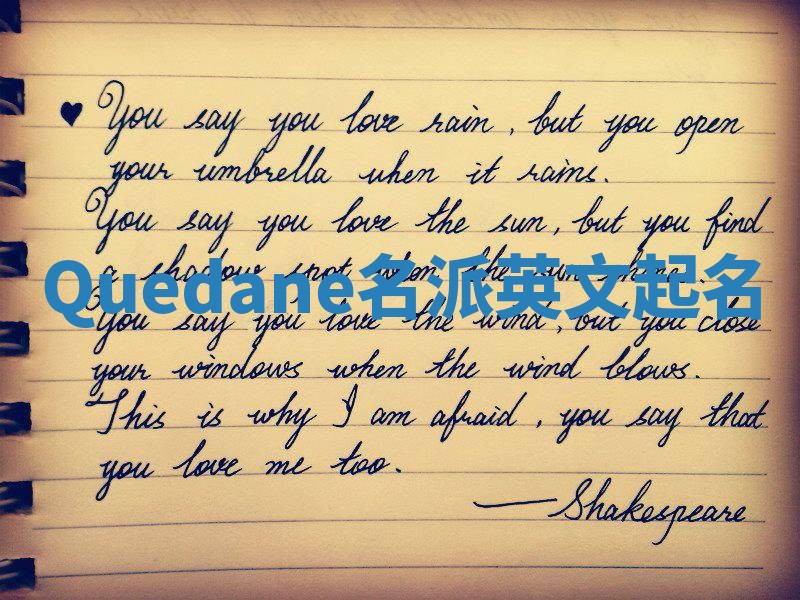 ♥ You say you love rain, but you open
your umbrella when it rains.
You say you love the sun, but you find
a shadow spot when the sun shines.
Quedane名派英文起名
You say you love the wind, but you close
your windows when the wind blows.
This is why I am afraid, you say that
you love me too.
—Shakespeare